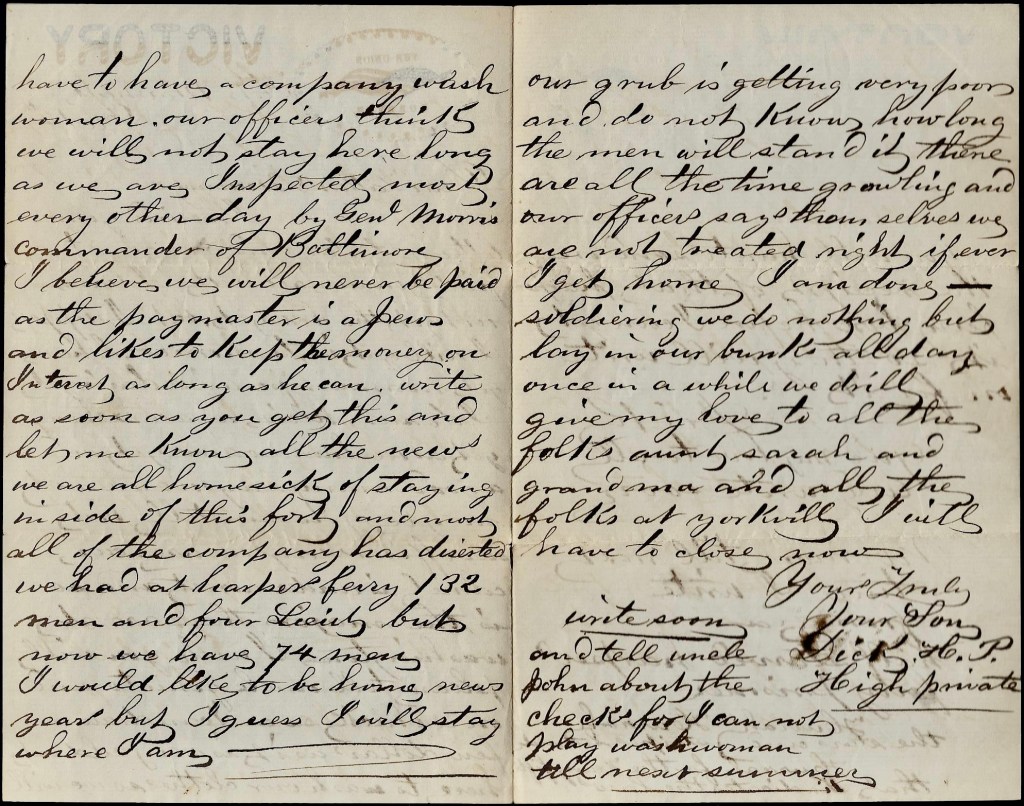 VICTORY
have to have a company wash
woman. our officers think
we will not stay here long
as we are Inspected most
every other day by Genl Morris
commander of Baltimore
I believe we will never be paid
as the paymaster is a Jew
and likes to Keep the money on
Interest as long as he can. write
as soon as you get this and
let me Know all the news
we are all homesick of staying
inside of this fort and most
all of the company has diserted
we had at harpers ferry 132
men and four Lieut but
now we have 74 men
I would like to be home new
year but I guess I will stay
where I am
our grub is getting very poor
and do not Know how long
the men will stand it there
are all the time growling and
our officers says them selves we
are not treated right if ever
I get home I am done
soldiering we do nothing but
lay in our bunks all day
once in a while we drill
give my love to all the
folks aunt sarah and
grandma and all the
folks at yorkvill I will
have to close now
Yours Truly
Your Son
Dick. H. P.
High private
write soon
and tell uncle
John about the
checks for I can not
play washwoman
till next summer